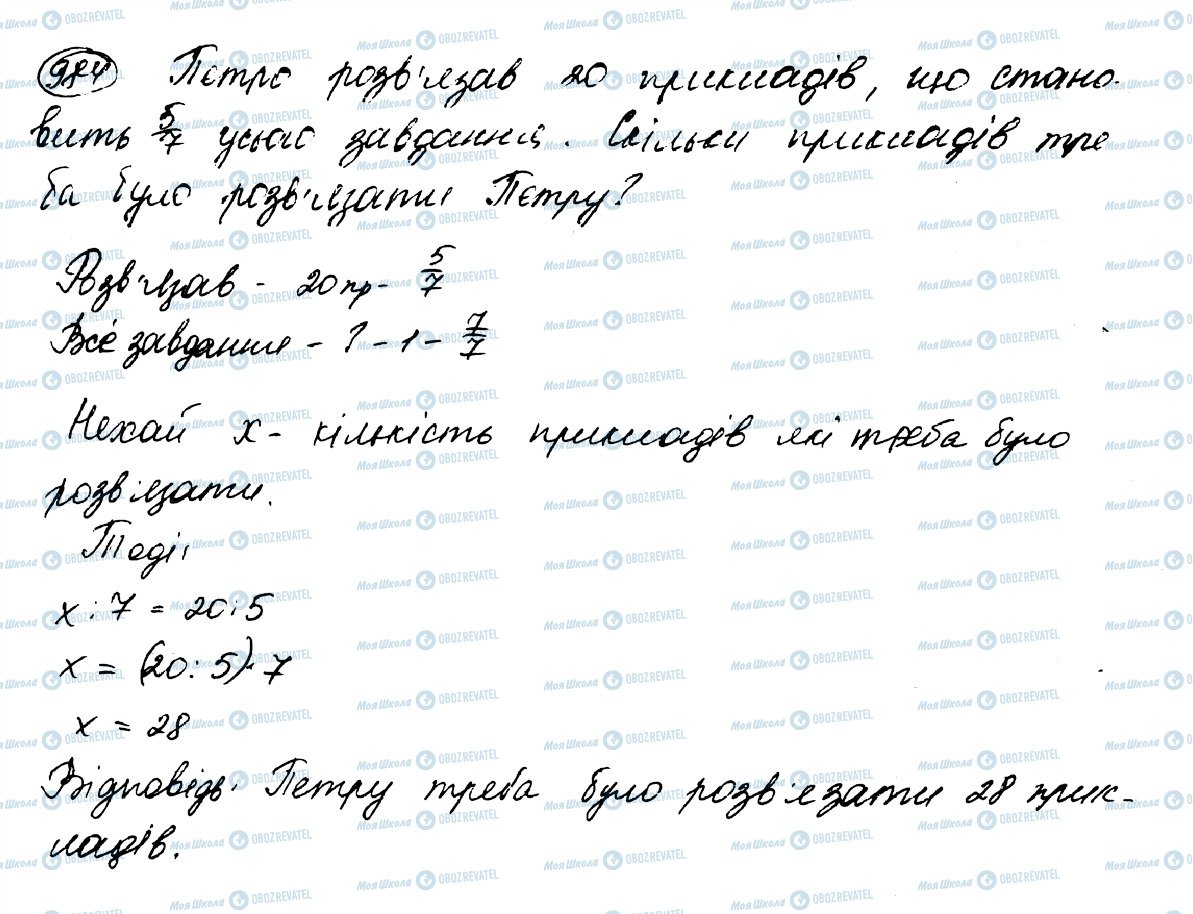 984 Петро розв'язав 20 прикладів, що стано-
вить 5/7 усього завдання. Скільки прикладів тре
ба було розв'язати Петру?
Розв'язав - 20 пр - 5/7
Все завдання - ? - 1 - 7/7
Нехай х - кількість прикладів які треба було
розв'язати.
Тоді:
х : 7 = 20 : 5
х = (20 : 5) · 7
х = 28
Відповідь: Петру треба було розв'язати 28 прик-
ладів.
Моя Школа OBOZREVATEL